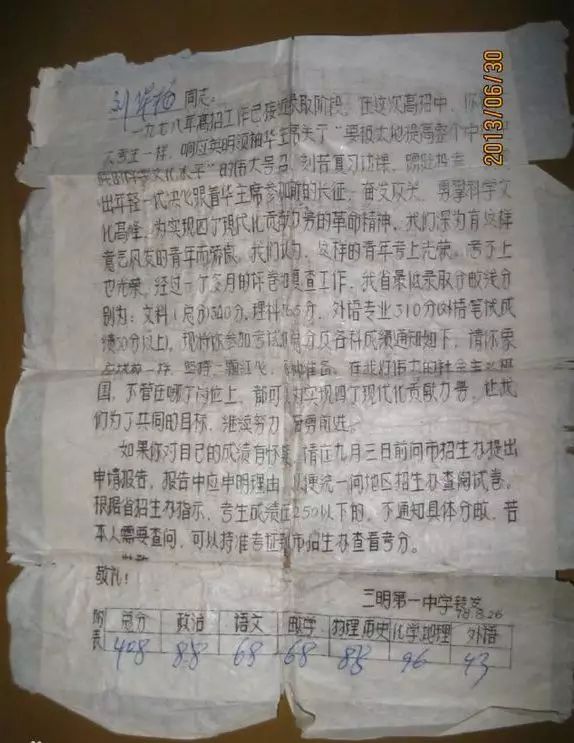 2013/06/30
同志:
一九七八年高招工作已接近录取阶段, 在这次高招中, 你
考生一样, 响应英明领袖华主席关于“要极大地提高整个中
科学文化水平”的伟大号召, 刻苦复习功课,
出年轻一代决心跟着华主席参加新的长征, 奋发攻关, 勇攀科学文
化高峰, 为实现四个现代化贡献力量的革命精神, 我们深为有这样
意气风发的青年而骄傲, 我们认为, 这样的青年考上光荣, 考不上
也光荣, 经过一个多月的评卷和复查工作, 我省最低录取分数线分
别为: 文科(总分)340分, 理科365分, 外语专业310分(外语笔试成
绩50分以上), 现将你参加考试的总分及各科成绩通知如下, 请你象
一样, 一颗红心, 准备, 在我们伟大的社会主义祖
国, 不管在哪个岗位上, 都可以为实现四个现代化贡献力量, 让我
们为了共同的目标, 继续努力, 奋勇前进。
如果你对自己的成绩有怀疑, 请在九月三日前向市招生办提出
申请报告, 报告中应申明理由, 以便统一向地区招生办查阅试卷,
根据省招生办指示, 考生成绩在250以下的, 不通知具体分数, 若
本人需要查问, 可以持准考证到市招生办查看考分。
敬礼!
三明第一中学转发
78.8.26
附表 总分 政治 语文 数学 物理历史 化学地理 外语
408 88 68 68 88 96 43